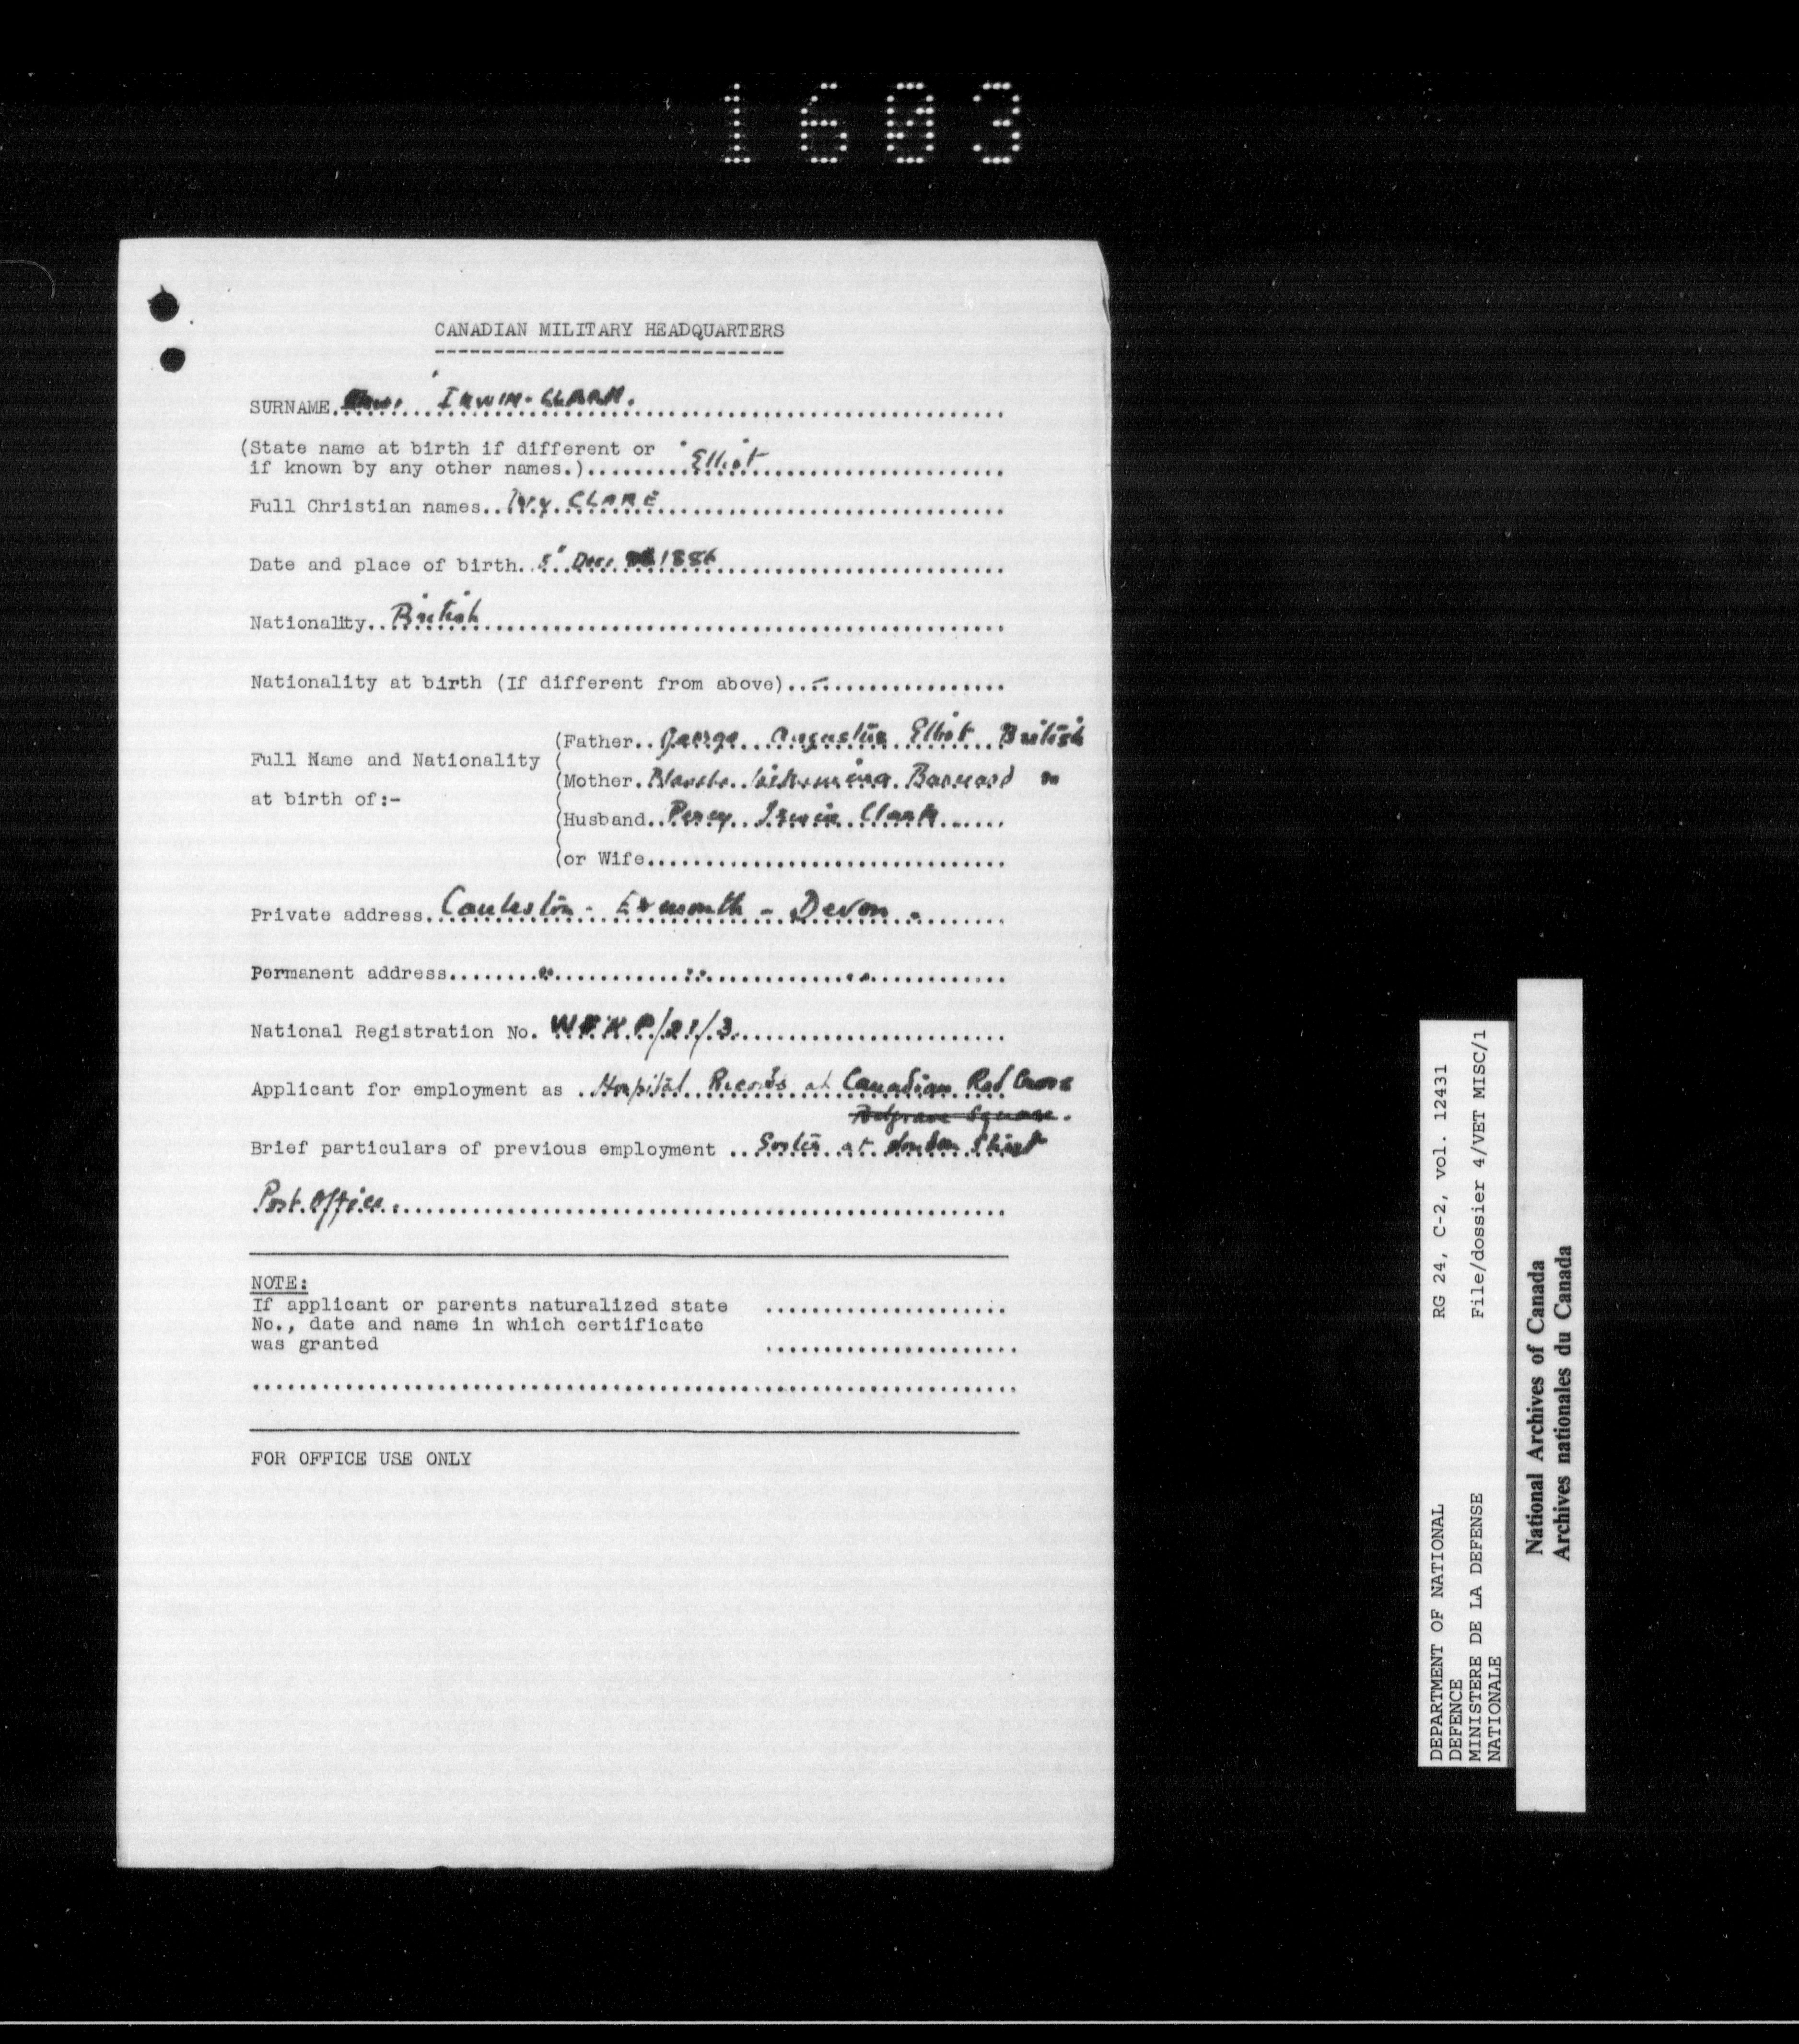 1603
CANADIAN MILITARY HEADQUARTERS
SURNAME. IRWIN-CLARK.
(State name at birth if different or
if known by any other names.) Elliot
Full Christian names. Ivy CLARE
Date and place of birth. 5" Dec. 1886
Nationality. British
Nationality at birth (If different from above). –
(Father. George Augustus Elliot British
Full Name and Nationality
(Mother. Blanche Barnard "
at birth of:-
(Husband. Percy Irwin Clark
(or Wife.
Private address. Exmouth - Devon.
Permanent address. " " "
National Registration No. W.F.K.P/21/3.
Applicant for employment as Hospital Records at Canadian Red Cross
Belgrave Square.
Brief particulars of previous employment Sorter at London Street
Post Office.
NOTE:
If applicant or parents naturalized state
No., date and name in which certificate
was granted
FOR OFFICE USE ONLY
DEPARTMENT OF NATIONAL
DEFENCE
MINISTERE DE LA DEFENSE
NATIONALE
RG 24, C-2, vol. 12431
File/dossier 4/VET MISC/1
National Archives of Canada
Archives nationales du Canada